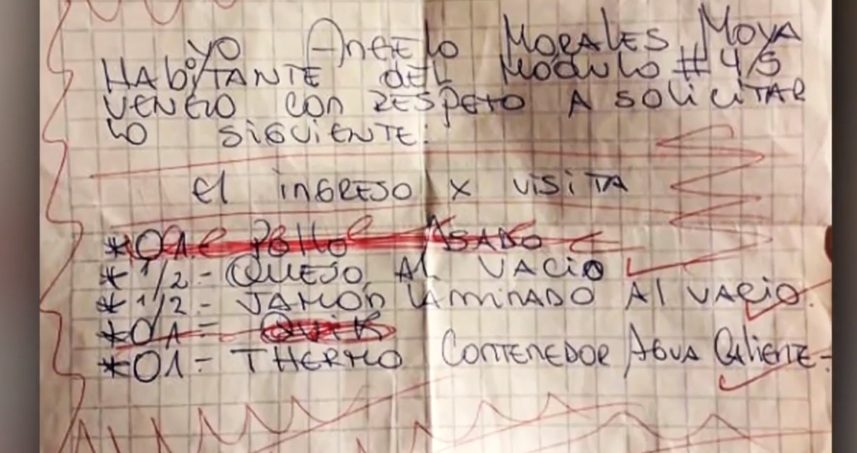 YO Angelo Morales Moya
Habitante del módulo #4/5
vengo con respeto a solicitar
lo siguiente:
el ingreso x visita
*01= Pollo Asado
*1/2- Queso al vacio
*1/2- Jamón laminado al vacio.
*01= Quik
*01= Thermo Contenedor Agua Caliente-